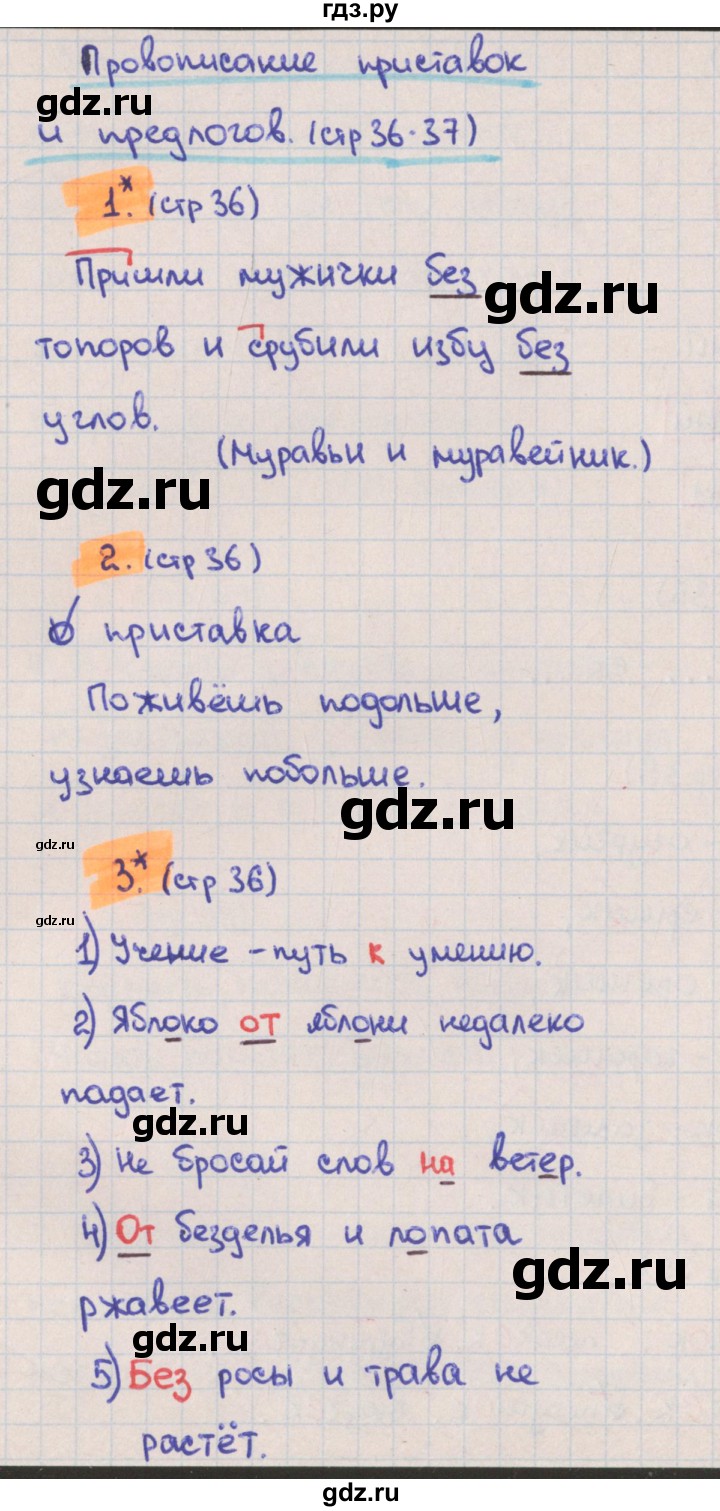 гдз.ру
Провописание приставок
gdz.ru
и предлогов. (стр 36-37)
1.* (стр 36)
Пришли мужички без
gdz.ru
топоров и срубили избу без
углов.
(Муравьи и муравейник.)
gdz.ru
2. (стр 36)
приставка
Поживёшь подольше,
узнаешь побольше.
gdz.ru
gdz.ru
3.* (стр 36)
gdz.ru
1) Учение - путь к умению.
2) Яблоко от яблони недалеко
падает.
gdz.ru
3) Не бросай слов на ветер.
4) От безделья и лопата
gdz.ru
ржавеет.
gdz.ru
5) Без росы и трава не
растёт.